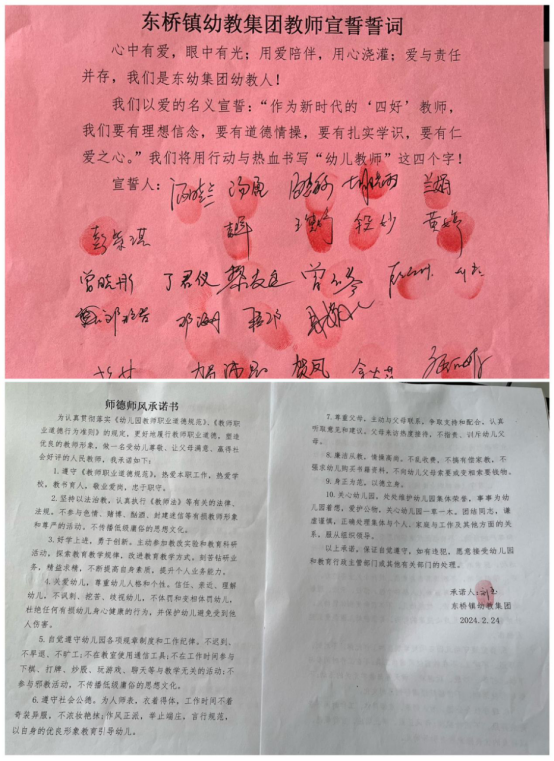 东桥镇幼教集团教师宣誓誓词
心中有爱，眼中有光；用爱陪伴，用心浇灌；爱与责任
并存，我们是东幼集团幼教人！
我们以爱的名义宣誓：“作为新时代的‘四好’教师，
我们要有理想信念，要有道德情操，要有扎实学识，要有仁
爱之心。”我们将用行动与热血书写“幼儿教师”这四个字！
宣誓人：
彭荣祺 程妙 黄婷
曾晓彤 丁君仪
贺凤
师德师风承诺书
为认真贯彻落实《幼儿园教师职业道德规范》、《教师职
业道德行为准则》的规定，更好地履行教师职业道德，塑造
优良的教师形象，做一名受幼儿尊敬、让父母满意、赢得社
会好评的人民教师，我承诺如下：
1.遵守《教师职业道德规范》，热爱本职工作，热爱学
校，教书育人，敬业爱岗，忠于职守。
2.坚持以法治教，认真执行《教师法》等有关的法律、
法规，不参与色情、赌博、酗酒、封建迷信等有损教师形象
和尊严的活动，不传播低级庸俗的思想文化。
3.好学上进，勇于创新。主动参加教改实验和教育科研
活动，探索教育教学规律，改进教育教学方式，刻苦钻研业
务，精益求精，不断提高自身素质，提升个人业务能力。
4.关爱幼儿，尊重幼儿人格和个性。信任、亲近、理解
幼儿，不讽刺、挖苦、歧视幼儿，不体罚和变相体罚幼儿，
杜绝任何有损幼儿身心健康的行为，并保护幼儿避免受到他
人伤害。
5.自觉遵守幼儿园各项规章制度和工作纪律，不迟到、
不早退、不旷工；不在教室使用通信工具；不在工作时间参与
下棋、打牌、炒股、玩游戏、聊天等与教学无关的活动；不
参与邪教活动，不传播低级庸俗的思想文化。
6.遵守社会公德。为人师表，衣着得体，工作时间不着
奇装异服，不浓妆艳抹；作风正派，举止端庄，言行规范，
以自身的优良形象教育引导幼儿。
7.尊重父母，主动与父母联系，争取支持和配合，认真
听取意见和建议，父母来访热度接待，不指责、训斥幼儿父
母。
8.廉洁从教，情操高尚。不乱收费，不搞有偿家教，不
强求幼儿购买书籍资料，不向幼儿父母索要或变相索要钱物。
9.身正为范，以德立身。
10.关心幼儿园，处处维护幼儿园集体荣誉，事事为幼
儿园着想，爱护公物，关心幼儿园一草一木。团结同志，谦
虚谨慎，正确处理集体与个人、家庭与工作及其他方面的关
系，服从组织领导。
以上承诺，保证自觉遵守，如有违犯，愿意接受幼儿园
和教育行政主管部门或其他有关部门的处理。
承诺人：
东桥镇幼教集团
2024.2.24